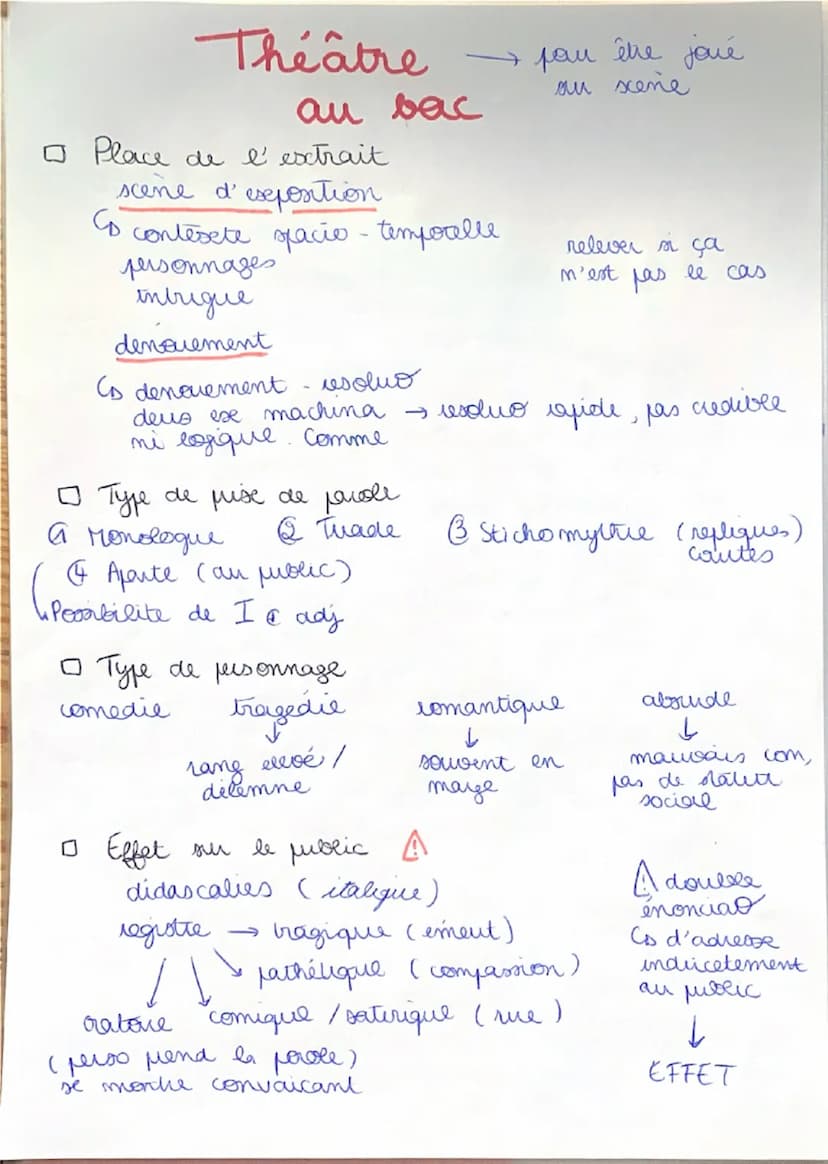 Théâtre → pour être joué
au bac sur scène
□ Place de l'extrait
scène d'exposition
↳ contexte spacio-temporelle
personnages
intrigue
relever si ça
n'est pas le cas
denouement
↳ denouement - resoluo
deus ex machina → resoluo rapide, pas credible
ni logique. Comme
□ Type de prise de parole
① Monologue ② Tirade ③ Stichomythie (repliques)
courtes
④ Aparte (au public)
↳ Possibilite de I © adj
□ Type de personnage
comedie tragédie romantique absurde
↓ ↓ ↓
rang elevé / souvent en mauvais com,
délemne marge pas de statut
social
□ Effet sur le public ⚠
didascalies (italique)
registre → tragique (emeut)
pathétique (compassion)
oratoire comique / satirique (rire)
(perso prend la parole)
se montre convaicant
⚠ double
énonciao
↳ d'adresse
indirectement
au public
↓
EFFET